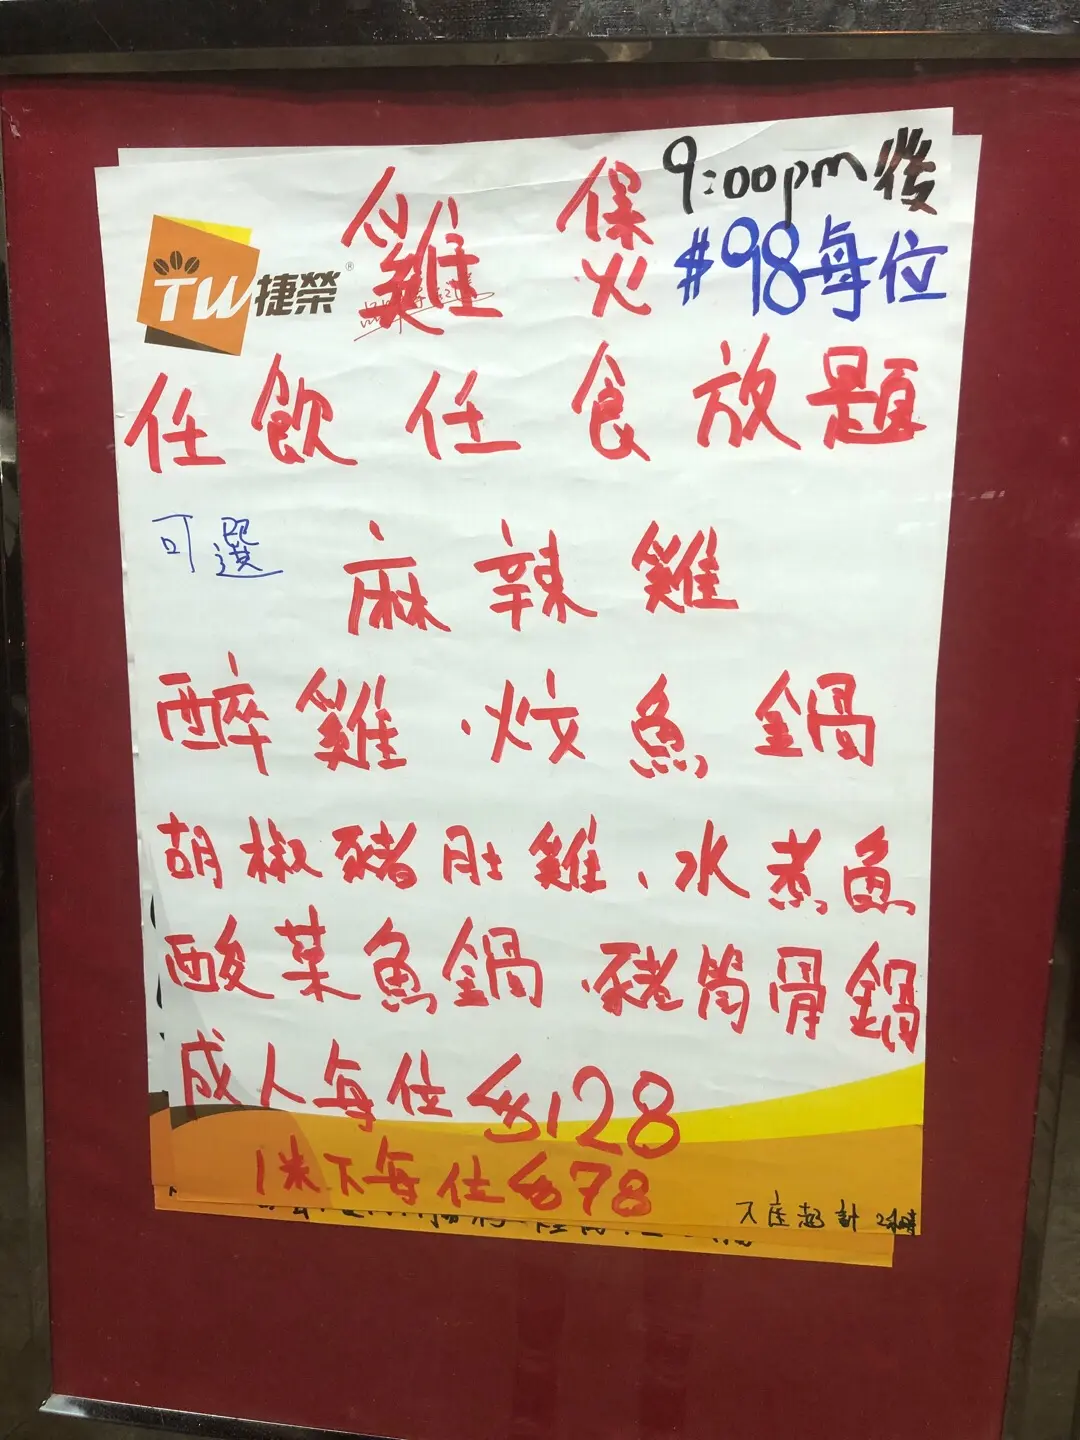 9:00pm後
TW捷榮®
雞煲
#98每位
任飲任食放題
可選
麻辣雞
醉雞.炆魚鍋
胡椒豬肚雞、水煮魚
酸菜魚鍋.豬筒骨鍋
成人每位$128
1米下每位$78
入座起計2小時